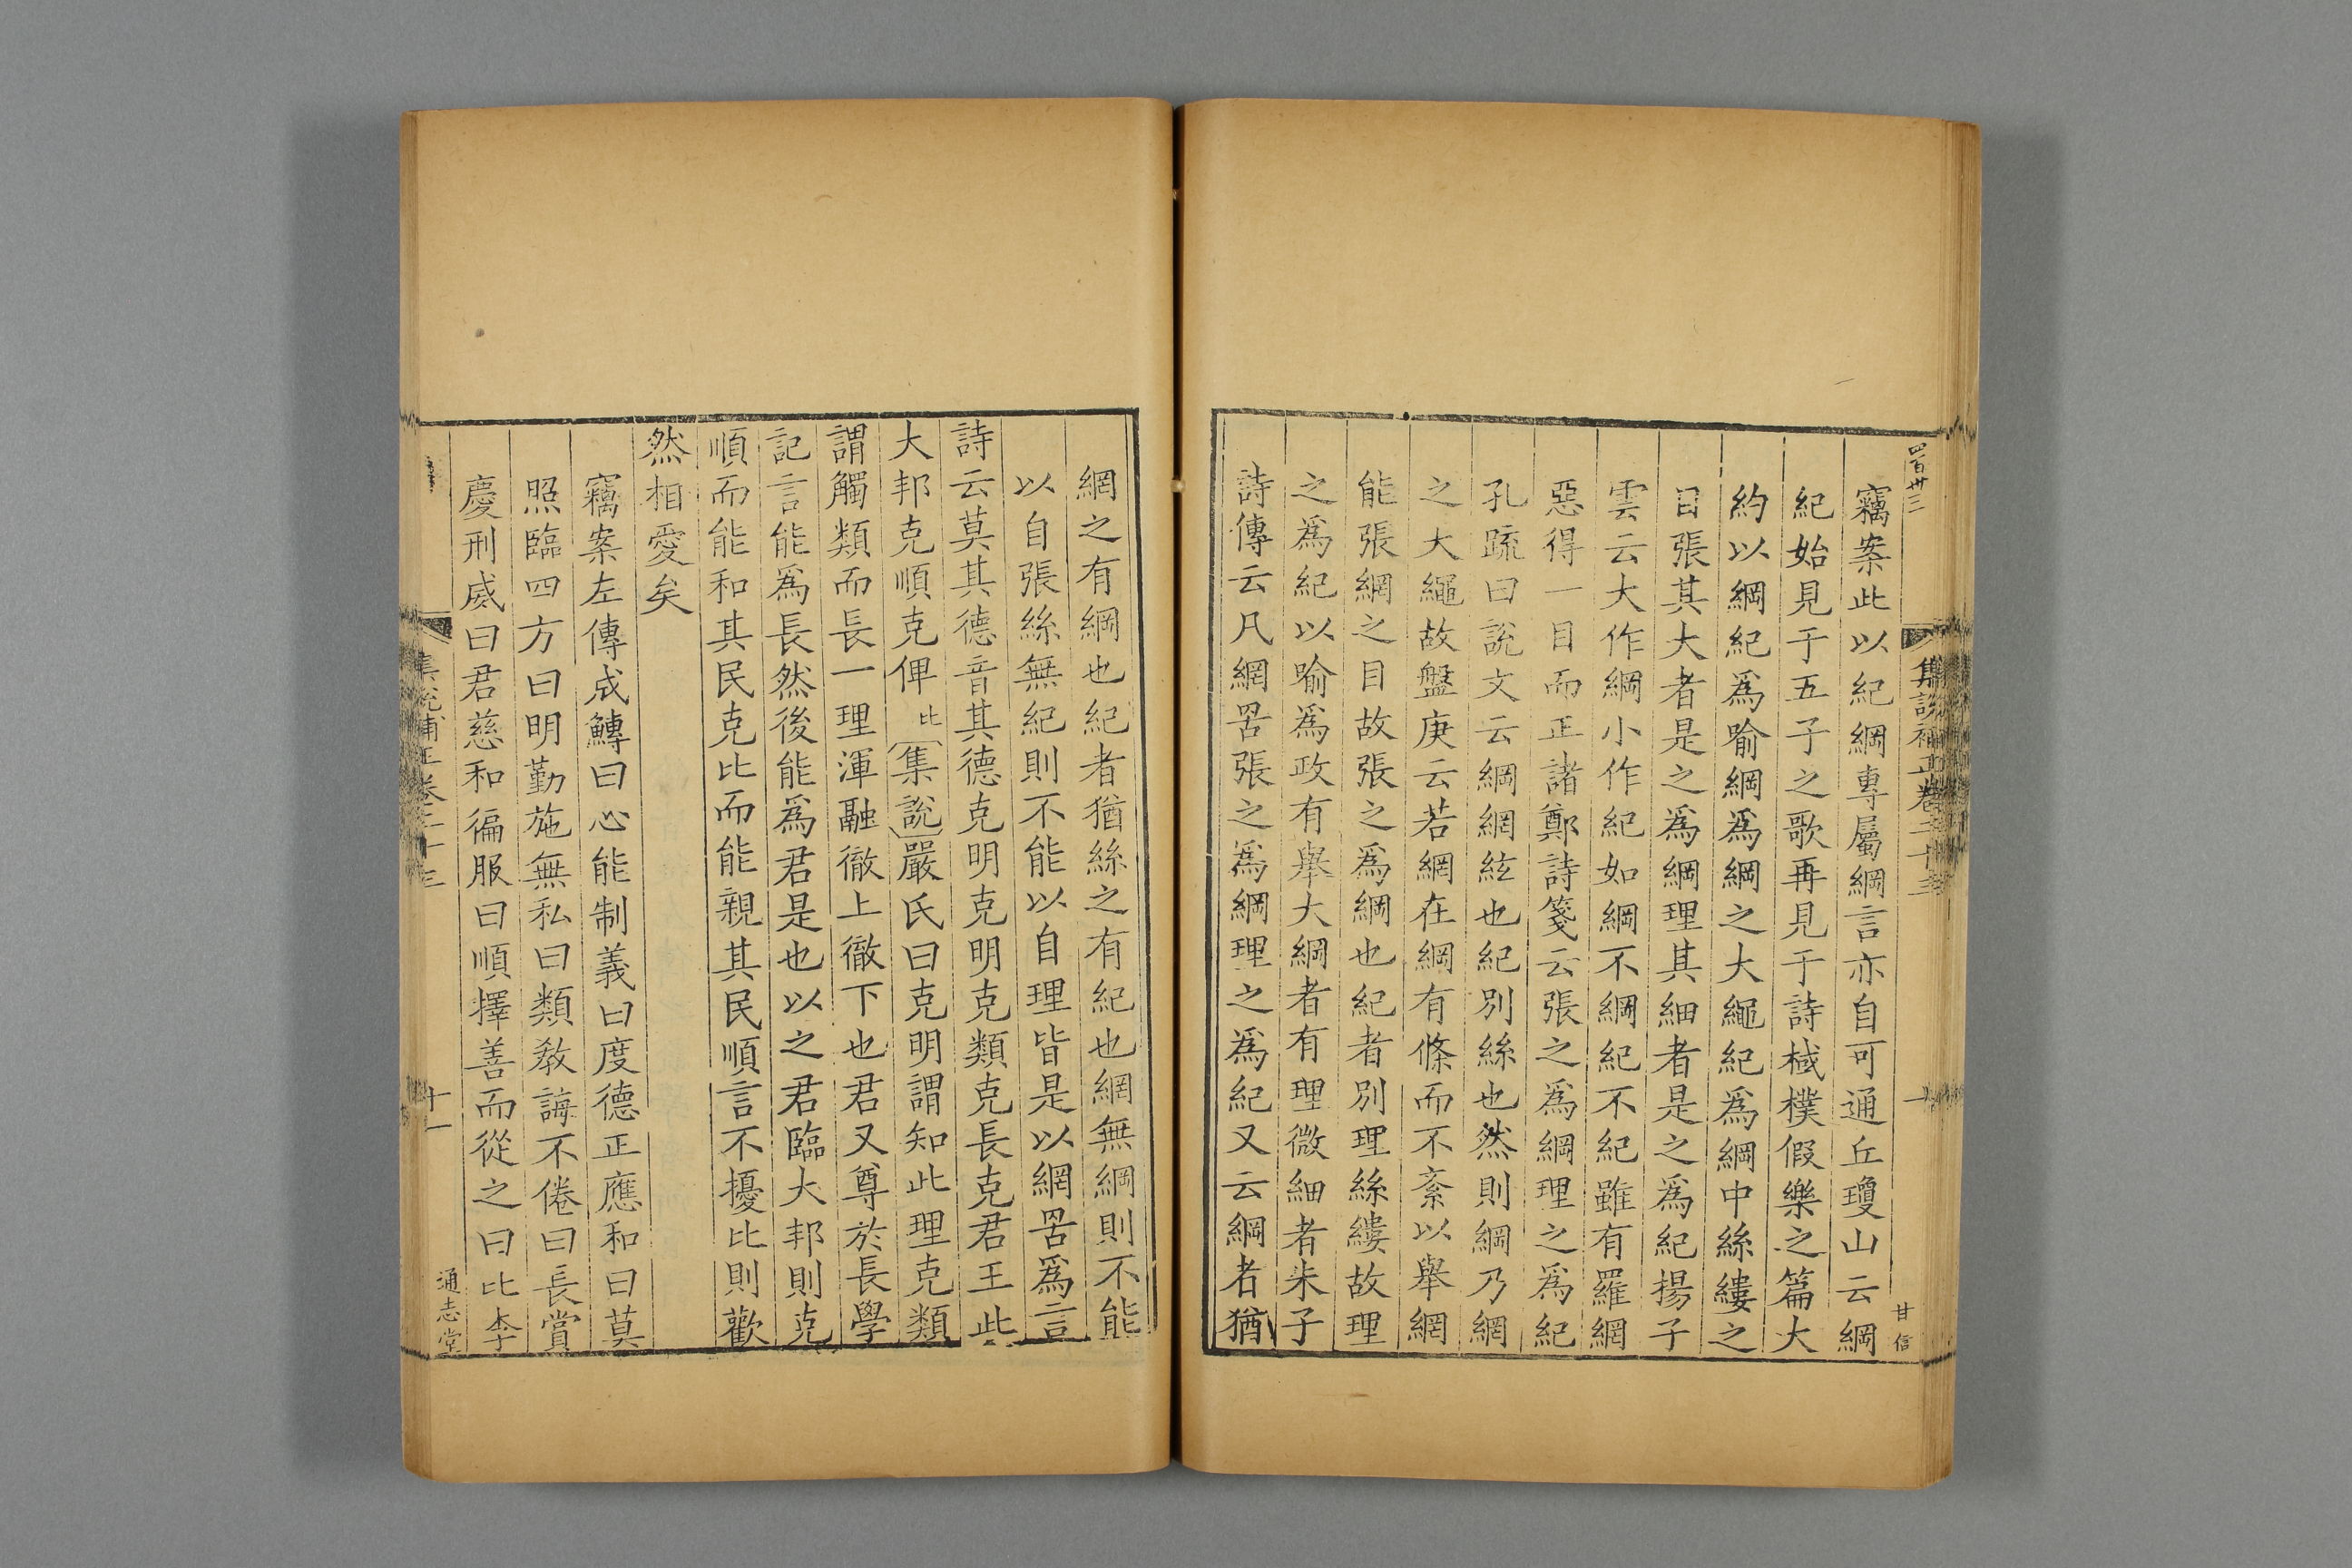 四百卅三
集說補正卷二十三
甘信
竊案此以紀綱專屬綱言亦自可通丘瓊山云綱
紀始見于五子之歌再見于詩棫樸假樂之篇大
約以綱紀爲喻綱爲綱之大繩紀爲綱中絲縷之
目張其大者是之爲綱理其細者是之爲紀揚子
雲云大作綱小作紀如綱不綱紀不紀雖有羅網
惡得一目而正諸鄭詩箋云張之爲綱理之爲紀
孔疏曰說文云綱網紘也紀別絲也然則綱乃網
之大繩故盤庚云若網在綱有條而不紊以舉網
能張網之目故張之爲綱也紀者別理絲縷故理
之爲紀以喻爲政有舉大綱者有理微細者朱子
詩傳云凡網罟張之爲綱理之爲紀又云綱者猶
網之有綱也紀者猶絲之有紀也網無綱則不能
以自張絲無紀則不能以自理皆是以網罟爲言
詩云莫其德音其德克明克明克類克長克君王此
大邦克順克俾比集說嚴氏曰克明謂知此理克類
謂觸類而長一理渾融徹上徹下也君又尊於長學
記言能爲長然後能爲君是也以之君臨大邦則克
順而能和其民克比而能親其民順言不擾比則歡
然相愛矣
竊案左傳成鱄曰心能制義曰度德正應和曰莫
照臨四方曰明勤施無私曰類教誨不倦曰長賞
慶刑威曰君慈和徧服曰順擇善而從之曰比李
集說補正卷二十三
十一
通志堂